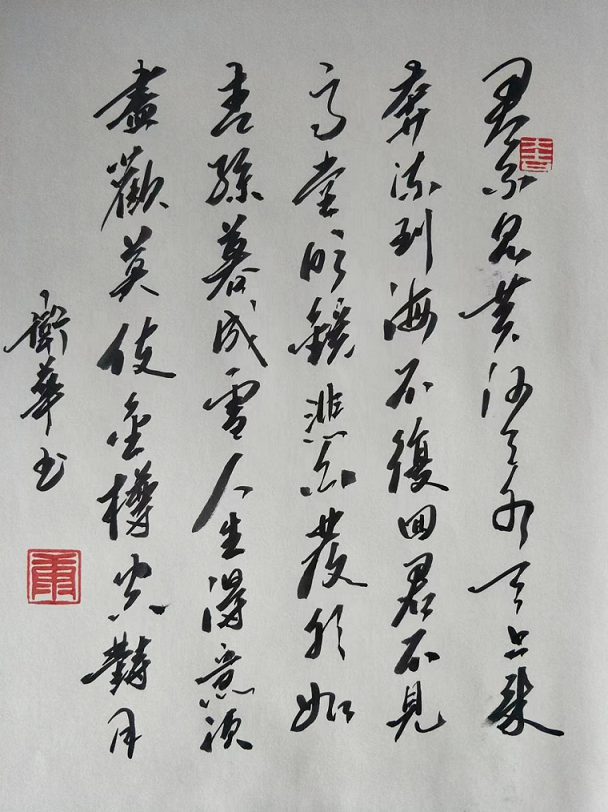 君不見黃河之水天上來
奔流到海不復回君不見
高堂明鏡悲白發朝如
青絲暮成雪人生得意須
盡歡莫使金樽空對月
華书